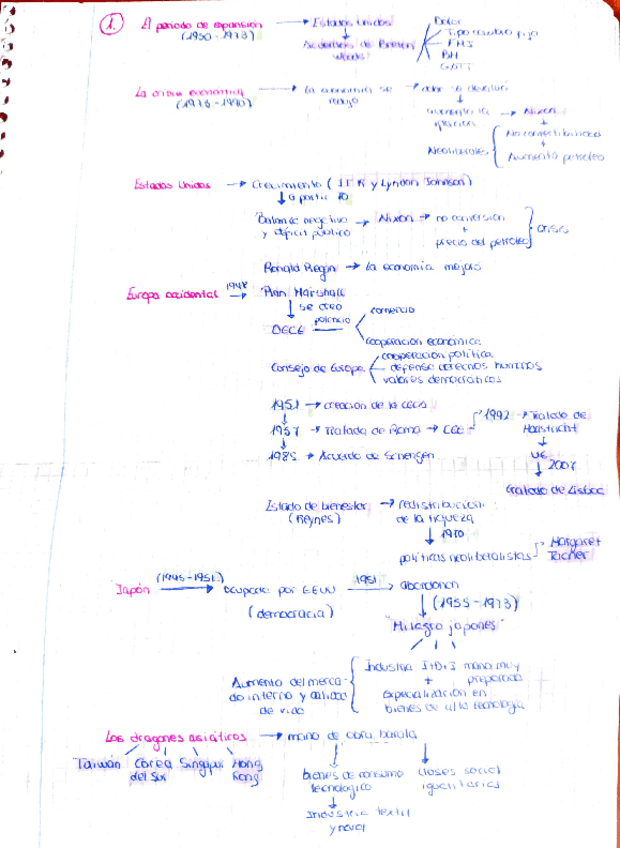 1. El periodo de expansión → Estados Unidos Dólar
(1950-1973) Acuerdos de Bretton Woods Tipo cambio fijo
FMI
BM
GATT
La crisis económica → La economía se redujo → dólar se devaluó
(1973-1990) aumento la inflación → Nixon
Neoliberales No convertibilidad
+
Aumento petróleo
Estados Unidos → Crecimiento (J.F.K y Lyndon Johnson)
↓ a partir 70
Balance negativo y déficit público → Nixon → no conversión
+
precio del petróleo
crisis
Ronald Regan → La economía mejoró
Europa occidental 1948 → Plan Marshall
↓ se creó
OECE potenció comercio
cooperación económica
Consejo de Europa cooperación política
defensa derechos humanos
valores democráticos
1951 → creación de la CECA
1957 → Tratado de Roma → CEE 1992 → Tratado de Maastricht
1985 → Acuerdo de Schengen UE
↓ 2007
tratado de Lisboa
Estado de bienestar → redistribución
(Keynes) de la riqueza
↓ 1980
políticas neoliberalistas Margaret Tacher
Japón (1945-1951) → ocuparte por EEUU 1951 → abandonan
(democracia) ↓ (1955-1973)
"Milagro japonés"
Aumento del mercado interno y calidad de vida
Industria I+D+I mano muy
+ preparada
especialización en
bienes de alta tecnología
Los dragones asiáticos → mano de obra barata
Taiwán Corea del Sur Singapur Hong Kong
bienes de consumo tecnológico clases social igualitarias
↓
Industria textil
y naval